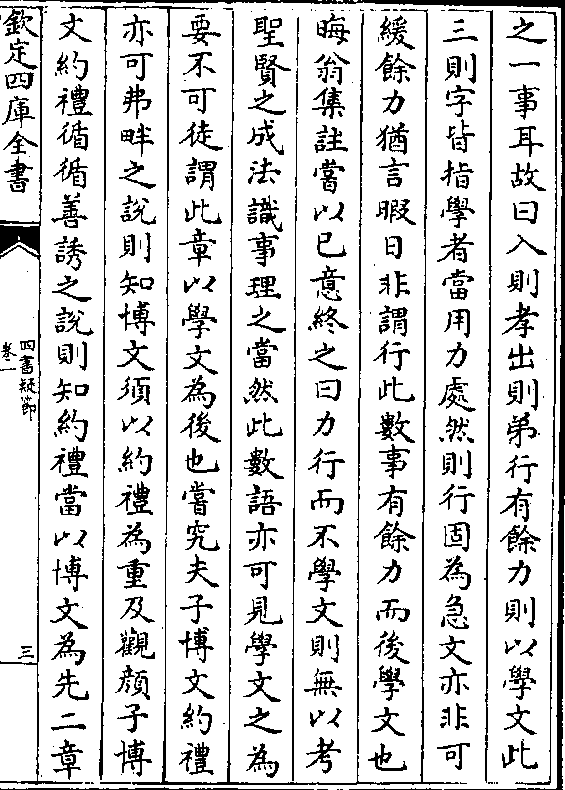 之一事耳故曰入則孝出則弟行有餘力則以學文此
三則字皆指學者當用力處然則行固為急文亦非可
緩餘力猶言暇日非謂行此數事有餘力而後學文也
晦翁集註嘗以已意終之曰力行而不學文則無以考
聖賢之成法識事理之當然此數語亦可見學文之為
要不可徒謂此章以學文為後也嘗究夫子博文約禮
亦可弗畔之說則知博文須以約禮為重及觀顔子博
文約禮循循善誘之說則知約禮當以博文為先二章
欽定四庫全書
四書疑節
卷一
三